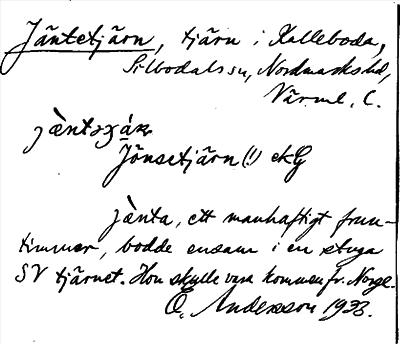 Jäntetjärn, tjärn i Kalleboda,
Silbodals sn, Nordmarks hd,
Värml. l.
Jönsetjärn (!) ekG
Jänta, ett manhaftigt frun-
timmer, bodde ensam i en stuga
SV tjärnet. Hon skulle vara kommen fr. Norge.
O. Andersson 1933.